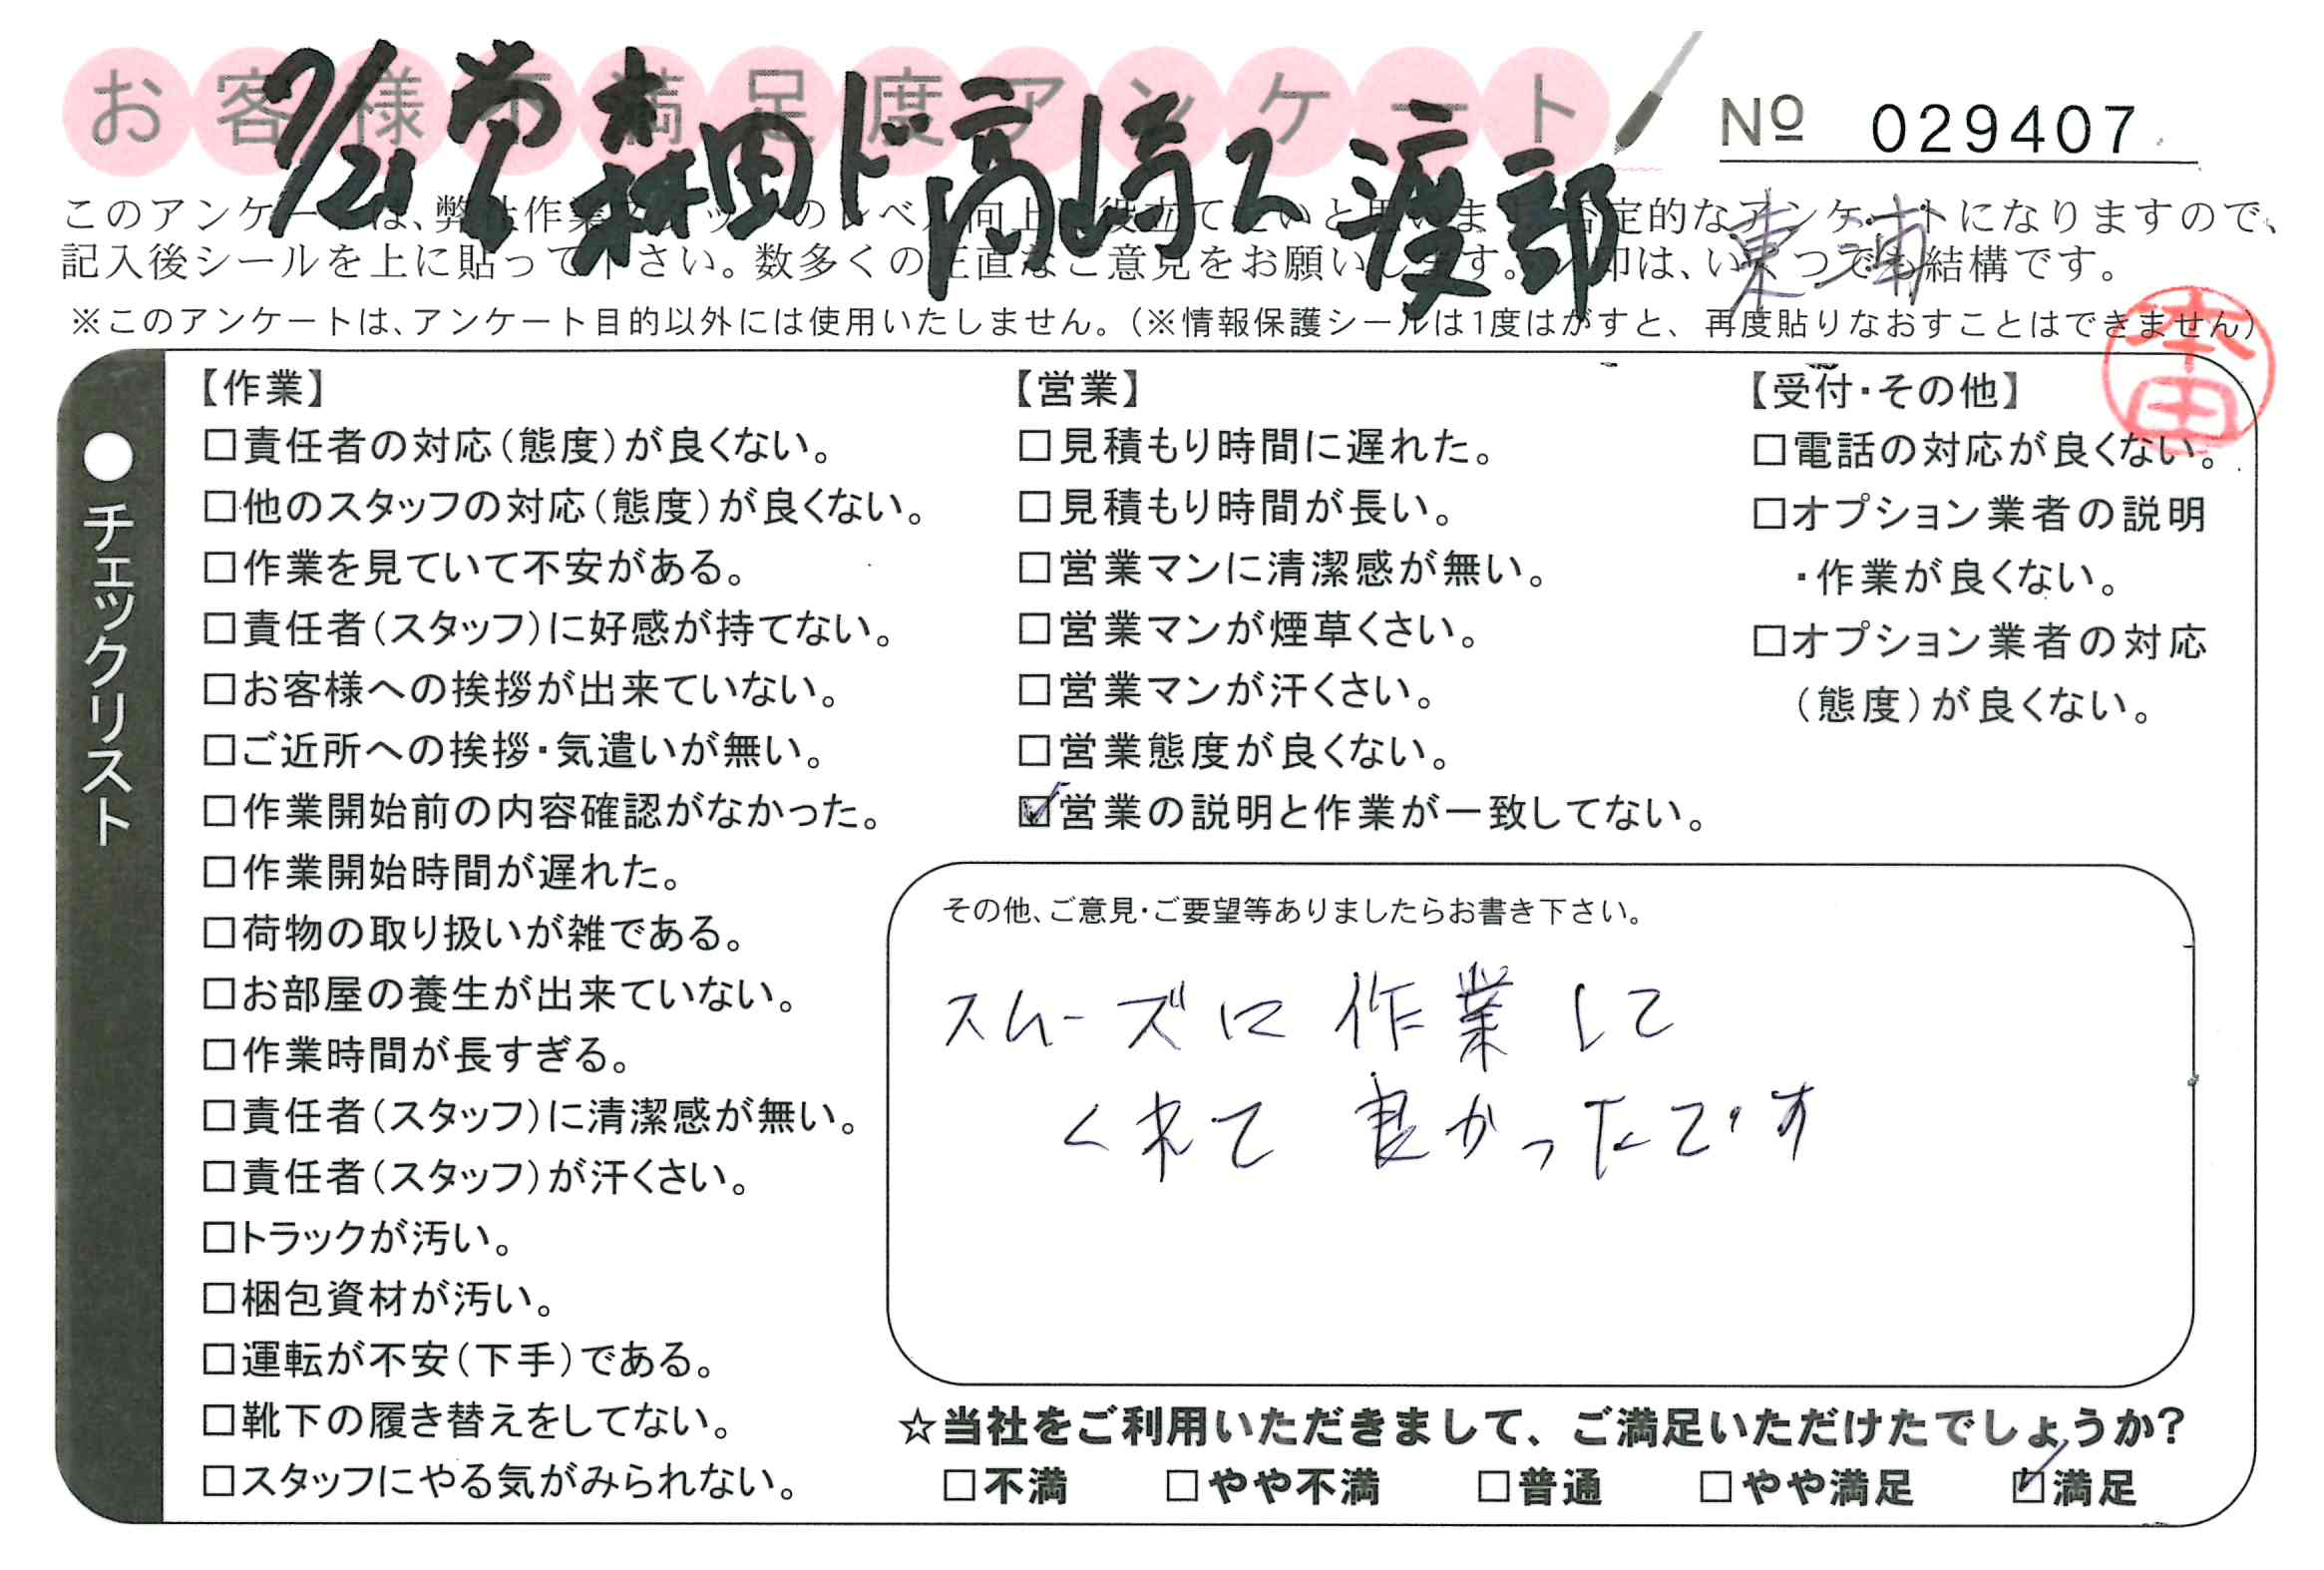 お客様不満足度アンケート
7/21 労 森田ド高崎2 渡部
№ 029407
このアンケートは、弊社作業スタッフのレベル向上に役立てたいと思います。否定的なアンケートになりますので、
記入後シールを上に貼って下さい。数多くの正直なご意見をお願いします。レ印は、いくつでも結構です。
東浦
※このアンケートは、アンケート目的以外には使用いたしません。(※情報保護シールは1度はがすと、再度貼りなおすことはできません)
本田
●チェックリスト
【作業】
□責任者の対応(態度)が良くない。
□他のスタッフの対応(態度)が良くない。
□作業を見ていて不安がある。
□責任者(スタッフ)に好感が持てない。
□お客様への挨拶が出来ていない。
□ご近所への挨拶・気遣いが無い。
□作業開始前の内容確認がなかった。
□作業開始時間が遅れた。
□荷物の取り扱いが雑である。
□お部屋の養生が出来ていない。
□作業時間が長すぎる。
□責任者(スタッフ)に清潔感が無い。
□責任者(スタッフ)が汗くさい。
□トラックが汚い。
□梱包資材が汚い。
□運転が不安(下手)である。
□靴下の履き替えをしてない。
□スタッフにやる気がみられない。
【営業】
□見積もり時間に遅れた。
□見積もり時間が長い。
□営業マンに清潔感が無い。
□営業マンが煙草くさい。
□営業マンが汗くさい。
□営業態度が良くない。
☑営業の説明と作業が一致してない。
【受付・その他】
□電話の対応が良くない。
□オプション業者の説明
・作業が良くない。
□オプション業者の対応
(態度)が良くない。
その他、ご意見・ご要望等ありましたらお書き下さい。
スムーズに作業して
くれて良かったです
☆当社をご利用いただきまして、ご満足いただけたでしょうか?
□不満 □やや不満 □普通 □やや満足 ☑満足